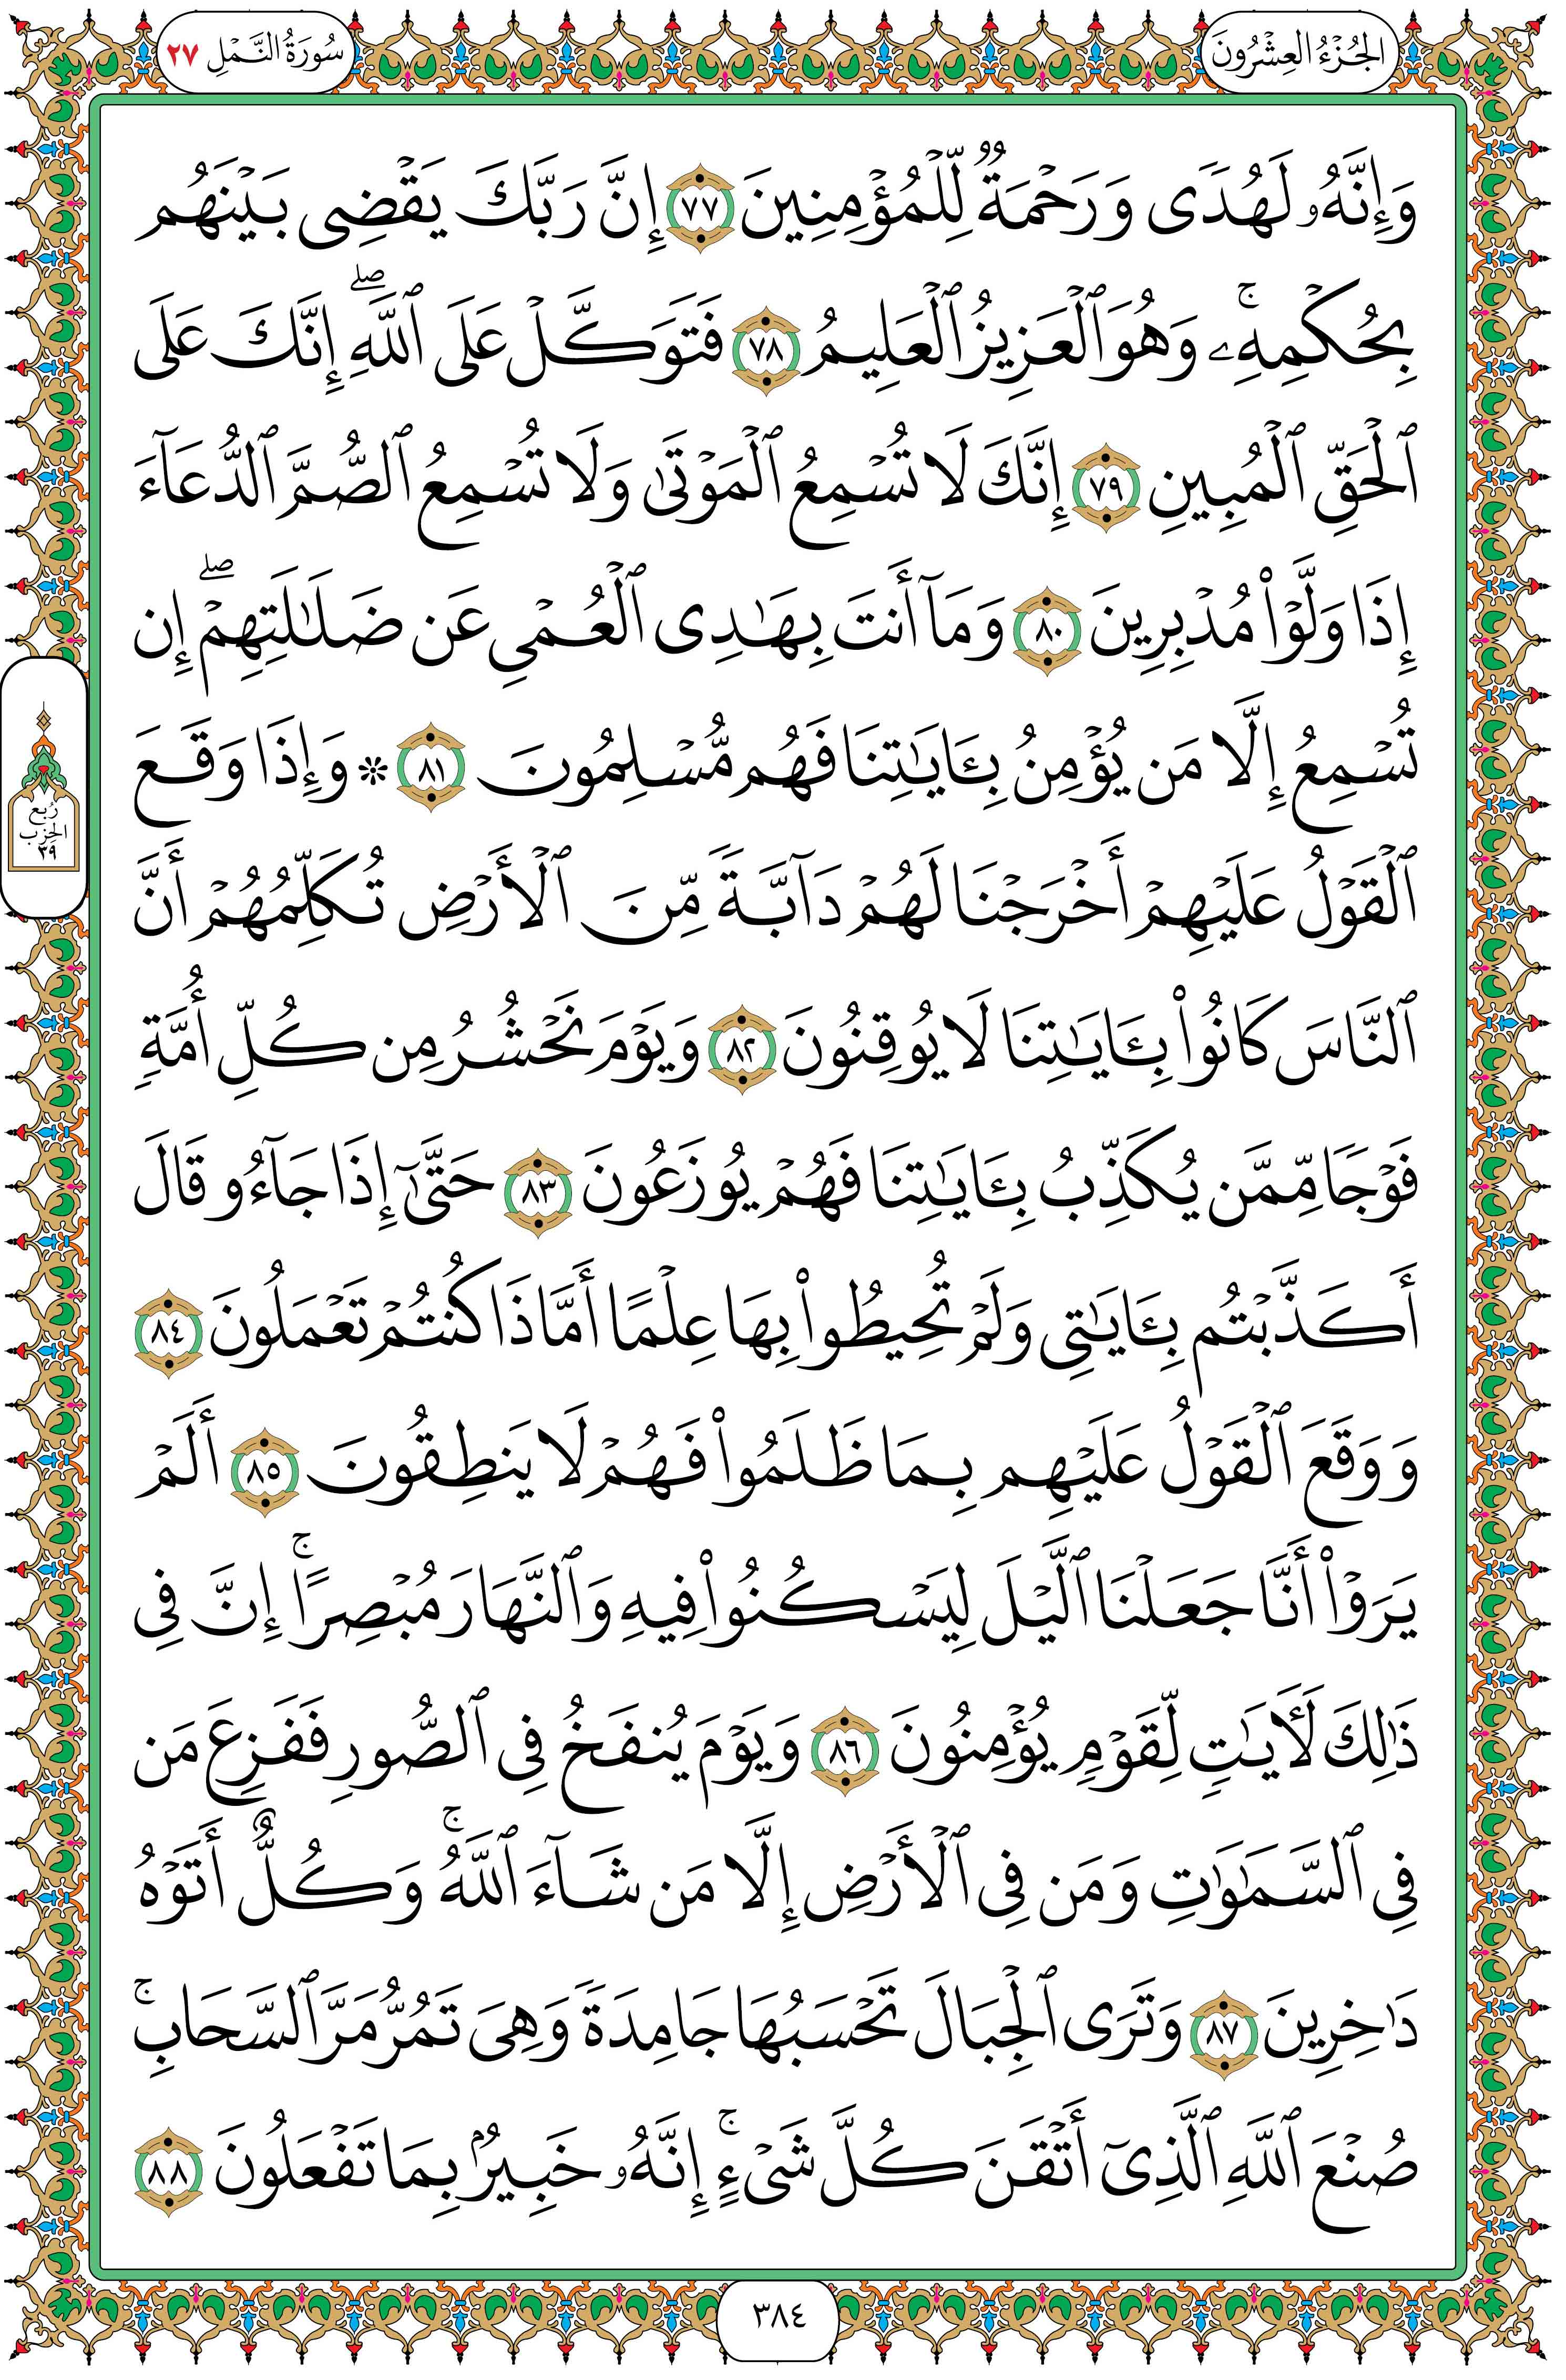 الجُزْءُ العِشْرُونَ
سُورَةُ النَّمْلِ ٢٧
وَإِنَّهُۥ لَهُدًى وَرَحْمَةٌ لِّلْمُؤْمِنِينَ ٧٧ إِنَّ رَبَّكَ يَقْضِى بَيْنَهُم
بِحُكْمِهِۦۚ وَهُوَ ٱلْعَزِيزُ ٱلْعَلِيمُ ٧٨ فَتَوَكَّلْ عَلَى ٱللَّهِۖ إِنَّكَ عَلَى
ٱلْحَقِّ ٱلْمُبِينِ ٧٩ إِنَّكَ لَا تُسْمِعُ ٱلْمَوْتَىٰ وَلَا تُسْمِعُ ٱلصُّمَّ ٱلدُّعَآءَ
إِذَا وَلَّوْا۟ مُدْبِرِينَ ٨٠ وَمَآ أَنتَ بِهَـٰدِى ٱلْعُمْىِ عَن ضَلَـٰلَتِهِمْۖ إِن
تُسْمِعُ إِلَّا مَن يُؤْمِنُ بِـَٔايَـٰتِنَا فَهُم مُّسْلِمُونَ ٨١ ۞ وَإِذَا وَقَعَ
ٱلْقَوْلُ عَلَيْهِمْ أَخْرَجْنَا لَهُمْ دَآبَّةً مِّنَ ٱلْأَرْضِ تُكَلِّمُهُمْ أَنَّ
ٱلنَّاسَ كَانُوا۟ بِـَٔايَـٰتِنَا لَا يُوقِنُونَ ٨٢ وَيَوْمَ نَحْشُرُ مِن كُلِّ أُمَّةٍ
فَوْجًا مِّمَّن يُكَذِّبُ بِـَٔايَـٰتِنَا فَهُمْ يُوزَعُونَ ٨٣ حَتَّىٰٓ إِذَا جَآءُو قَالَ
أَكَذَّبْتُم بِـَٔايَـٰتِى وَلَمْ تُحِيطُوا۟ بِهَا عِلْمًا أَمَّاذَا كُنتُمْ تَعْمَلُونَ ٨٤
وَوَقَعَ ٱلْقَوْلُ عَلَيْهِم بِمَا ظَلَمُوا۟ فَهُمْ لَا يَنطِقُونَ ٨٥ أَلَمْ
يَرَوْا۟ أَنَّا جَعَلْنَا ٱلَّيْلَ لِيَسْكُنُوا۟ فِيهِ وَٱلنَّهَارَ مُبْصِرًاۚ إِنَّ فِى
ذَٰلِكَ لَـَٔايَـٰتٍ لِّقَوْمٍ يُؤْمِنُونَ ٨٦ وَيَوْمَ يُنفَخُ فِى ٱلصُّورِ فَفَزِعَ مَن
فِى ٱلسَّمَـٰوَٰتِ وَمَن فِى ٱلْأَرْضِ إِلَّا مَن شَآءَ ٱللَّهُۚ وَكُلٌّ أَتَوْهُ
دَٰخِرِينَ ٨٧ وَتَرَى ٱلْجِبَالَ تَحْسَبُهَا جَامِدَةً وَهِىَ تَمُرُّ مَرَّ ٱلسَّحَابِۚ
صُنْعَ ٱللَّهِ ٱلَّذِىٓ أَتْقَنَ كُلَّ شَىْءٍۚ إِنَّهُۥ خَبِيرٌۢ بِمَا تَفْعَلُونَ ٨٨
رُبع
الحِزب
٣٩
٣٨٤